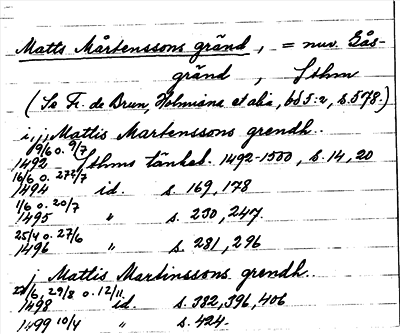 Matts Mårtenssons gränd, = nuv. Gås-
gränd, Sthm
(Se Fr. de Brun, Holmiana et alia, bd 5:2, s. 578.)
i, j, Mattis Martenssons grendh..
9/6 o. 9/7
1492 Sthms tänkeb. 1492-1500, s. 14, 20
16/6 o.
1494 id. s. 169, 178
1/6 o. 20/7
1495 " s. 230, 247.
25/4 o. 27/6
1496 " s. 281, 296
j Mattis Martinssons grendh..
29/8 o. 12/11
1498 id. s. 382, 396, 406
1499 10/4 " s. 424.